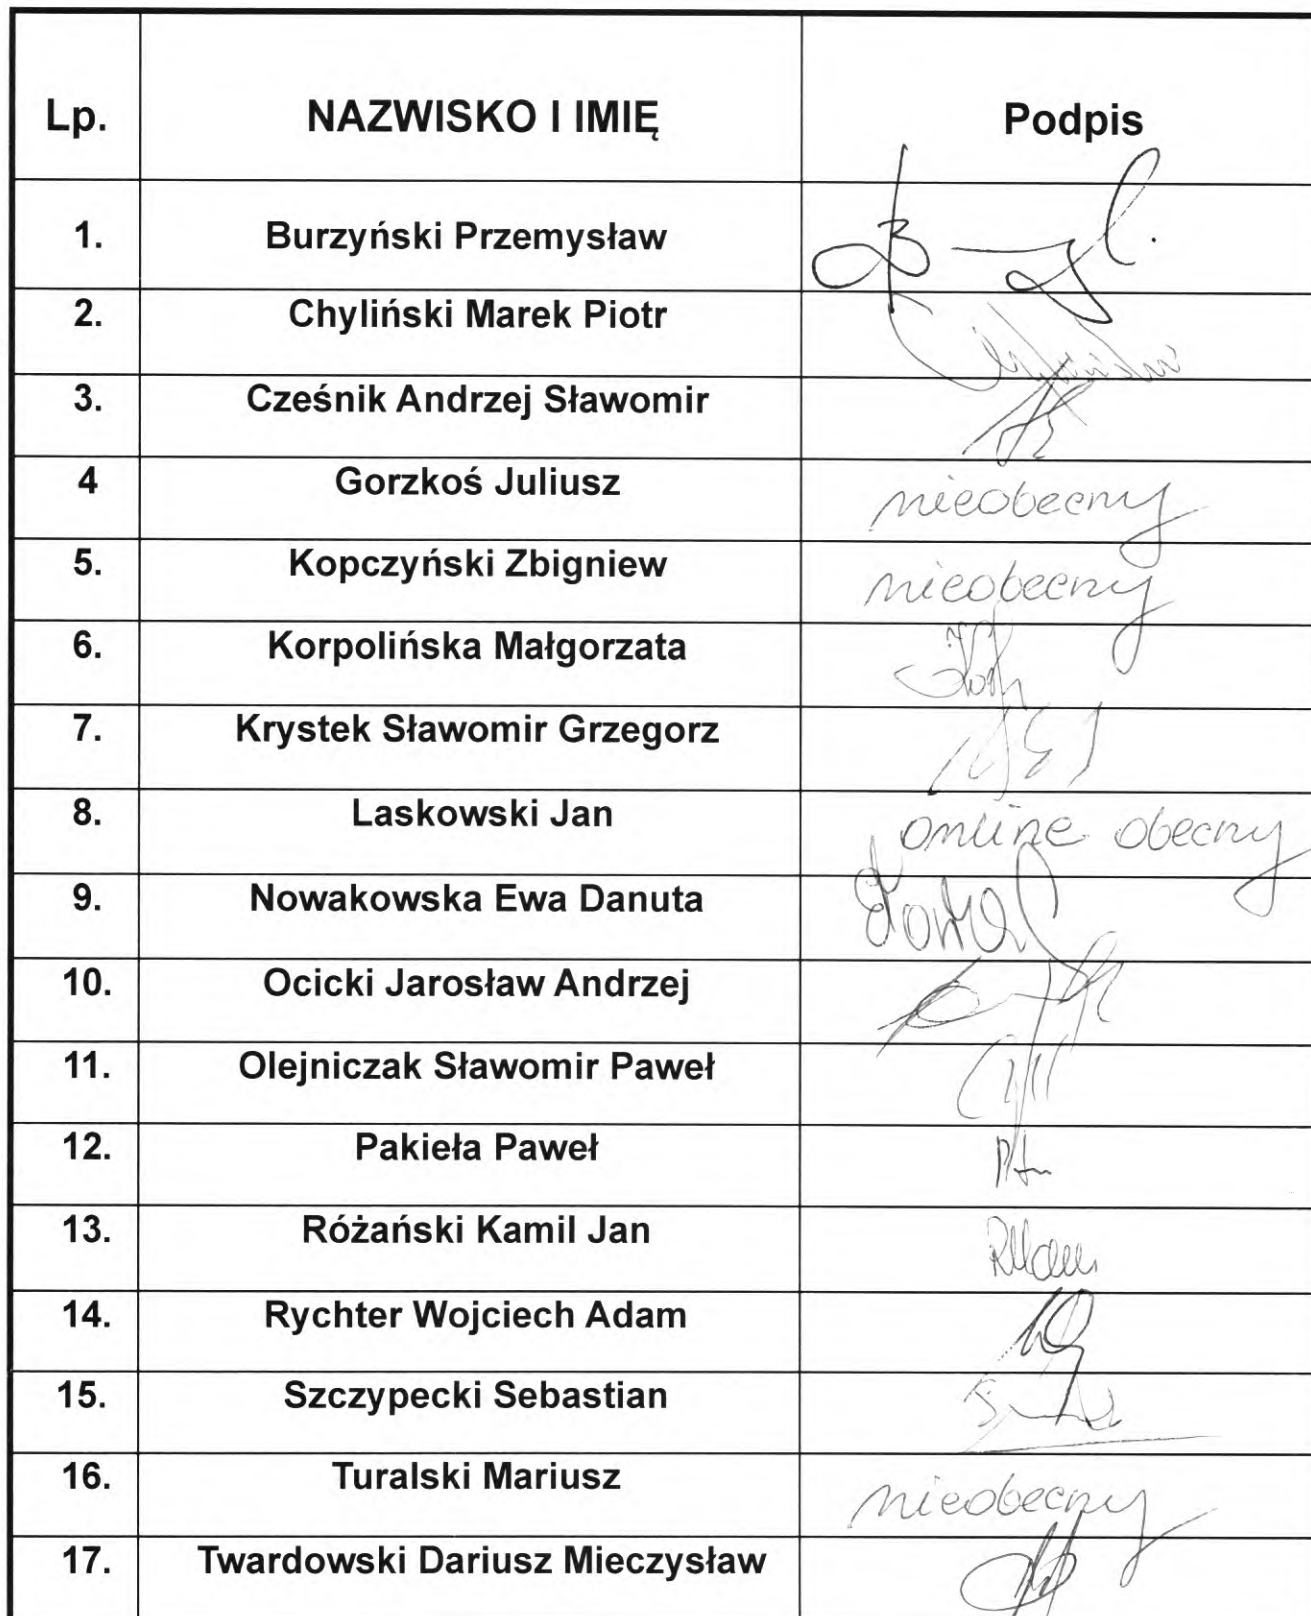 Lp. NAZWISKO I IMIĘ Podpis
1. Burzyński Przemysław
2. Chyliński Marek Piotr
3. Cześnik Andrzej Sławomir
4 Gorzkoś Juliusz nieobecny
5. Kopczyński Zbigniew nieobecny
6. Korpolińska Małgorzata
7. Krystek Sławomir Grzegorz
8. Laskowski Jan online obecny
9. Nowakowska Ewa Danuta
10. Ocicki Jarosław Andrzej
11. Olejniczak Sławomir Paweł
12. Pakieła Paweł
13. Różański Kamil Jan
14. Rychter Wojciech Adam
15. Szczypecki Sebastian
16. Turalski Mariusz nieobecny
17. Twardowski Dariusz Mieczysław